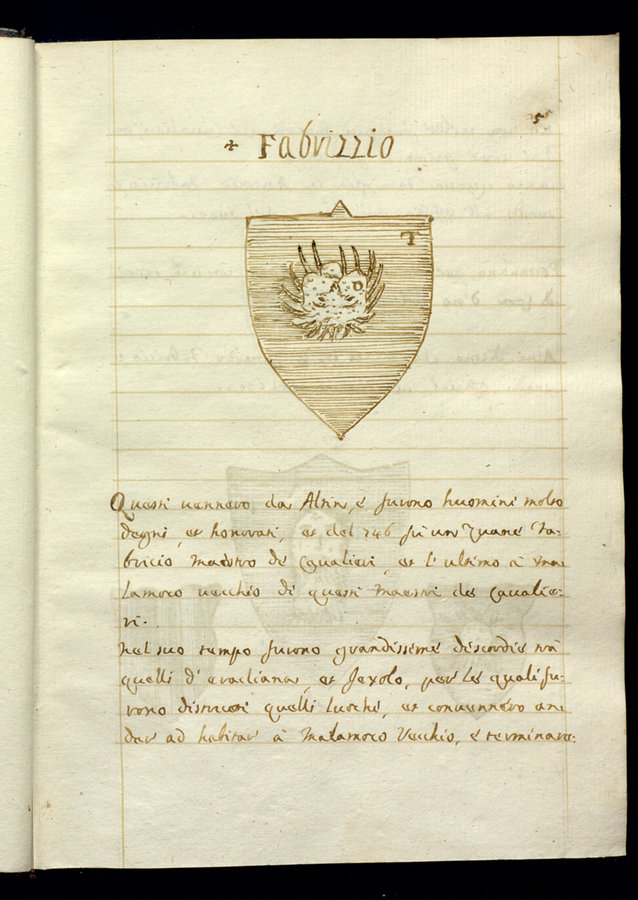 5
+ Fabrizzio
T
Questi uennero da Altin, e furono huomini molto
degni, et honorati, et del 746 fù un Zuane Fa-
bricio Maestro de Caualieri, et l'ultimo à Ma-
lamoco uecchio di questi Maestri de Caualie-
ri.
Nel suo tempo furono grandissime discordie trà
quelli d'eracliana, et Jexolo, per le quali fu-
rono distrutti quelli luochi, et conuennero an-
dar ad habitar à Malamoco Vecchio, e terminaro-